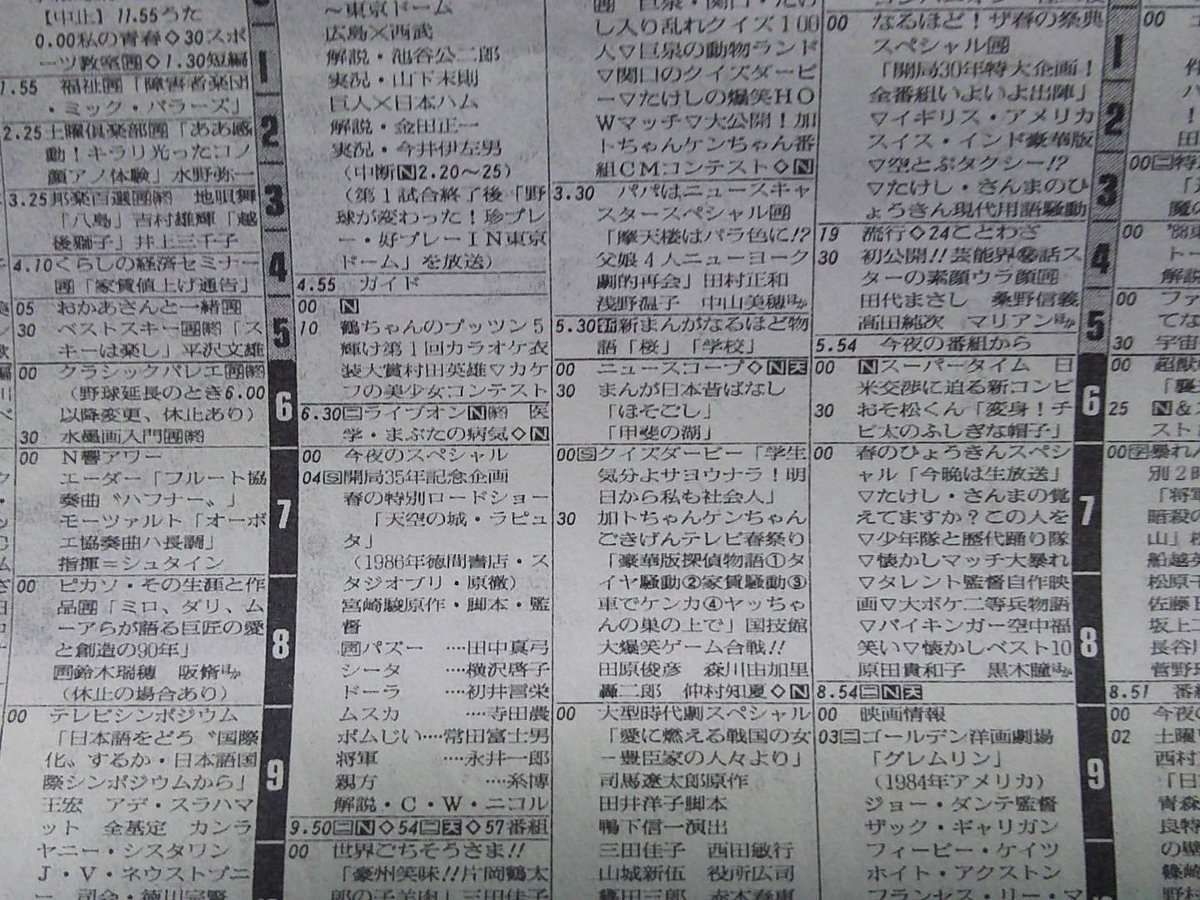 【中止】11.55うた
0.00私の青春◇30スポ
ーツ教室◇1.30短編
1.55 福祉「障害者楽団
・ミック・バラーズ」
2.25土曜倶楽部「ああ感
動！キラリ光ったコノ
顔アノ体験」水野弥一
3.25邦楽百選 地唄舞
「八島」吉村雄輝「越
後獅子」井上三千子
4.10くらしの経済セミナー
「家賃値上げ通告」
05 おかあさんと一緒
30 ベストスキー「ス
キーは楽し」平沢文雄
00 クラシックバレエ
（野球延長のとき6.00
以降変更、休止あり）
30 水墨画入門
00 N響アワー
エーダー「フルート協
奏曲〝ハフナー〟」
モーツァルト「オーボ
エ協奏曲ハ長調」
指揮＝シュタイン
00 ピカソ・その生涯と作
品「ミロ、ダリ、ム
ーアらが語る巨匠の愛
と創造の90年」
鈴木瑞穂 阪脩ほか
（休止の場合あり）
00 テレビシンポジウム
「日本語をどう〝国際
化〟するか・日本語国
際シンポジウムから」
王宏 アデ・スラハマ
ット 全基定 カンラ
ヤニー・シスタワン
J・V・ネウストプニ
1
2
3
4
5
6
7
8
9
～東京ドーム
広島×西武
解説・池谷公二郎
実況・山下末則
巨人×日本ハム
解説・金田正一
実況・今井伊左男
（中断N2.20～25）
（第1試合終了後「野
球が変わった！珍プレ
ー・好プレーIN東京
ドーム」を放送）
4.55 ガイド
00 N
10 鶴ちゃんのプッツン5
輝け第1回カラオケ衣
装大賞村田英雄▽カゲ
フの美少女コンテスト
6.30二ライブオンN 医
学・まぶたの病気◇N
00 今夜のスペシャル
04S開局35年記念企画
春の特別ロードショー
「天空の城・ラピュ
タ」
（1986年徳間書店・ス
タジオブリ・原徹）
宮崎駿原作・脚本・監
督
パズー …田中真弓
シータ …横沢啓子
ドーラ …初井言栄
ムスカ …寺田農
ポムじい…常田富士男
将軍 …永井一郎
親方 …糸博
解説・C・W・ニコル
9.50二N◇54二天◇57番組
00 世界ごちそうさま!!
「豪州笑味!!片岡鶴太
郎の子羊肉」三田佳子
し入り乱れクイズ100
人▽巨泉の動物ランド
▽関口のクイズダービ
ー▽たけしの爆笑HO
Wマッチ▽大公開！加
トちゃんケンちゃん番
組CMコンテスト◇N
3.30 パパはニュースキャ
スタースペシャル
「摩天楼はバラ色に!?
父娘4人ニューヨーク
劇的再会」田村正和
浅野温子 中山美穂ほか
5.30新まんがなるほど物
語「桜」「学校」
00 ニュースコープ◇N天
30 まんが日本昔ばなし
「ほそごし」
「甲斐の湖」
00Sクイズダービー「学生
気分よサヨウナラ！明
日から私も社会人」
30 加トちゃんケンちゃん
ごきげんテレビ春祭り
「豪華版探偵物語①タ
イヤ騒動②家賃騒動③
車でケンカ④ヤッちゃ
んの巣の上で」国技館
大爆笑ゲーム合戦!!
田原俊彦 森川由加里
轟二郎 仲村知夏◇N
00 大型時代劇スペシャル
「愛に燃える戦国の女
－豊臣家の人々より」
司馬遼太郎原作
田井洋子脚本
鴨下信一演出
三田佳子 西田敏行
山城新伍 役所広司
00 なるほど！ザ春の祭典
スペシャル
「開局30年特大企画！
全番組いよいよ出陣」
▽イギリス・アメリカ
スイス・インド豪華版
▽空とぶタクシー!?
▽たけし・さんまのひ
ょうきん現代用語騒動
19 流行◇24ことわざ
30 初公開!!芸能界㊙話ス
ターの素顔ウラ顔
田代まさし 桑野信義
高田純次 マリアンほか
5.54 今夜の番組から
00 Nスーパータイム 日
米交渉に迫る新コンビ
30 おそ松くん「変身！チ
ビ太のふしぎな帽子」
00 春のひょうきんスペシ
ャル「今晩は生放送」
▽たけし・さんまの覚
えてますか？この人を
▽少年隊と歴代踊り隊
▽懐かしマッチ大暴れ
▽タレント監督自作映
画▽大ボケ二等兵物語
▽バイキンガー空中福
笑い▽懐かしベスト10
原田貴和子 黒木瞳ほか
8.54二N天
00 映画情報
03二ゴールデン洋画劇場
「グレムリン」
（1984年アメリカ）
ジョー・ダンテ監督
ザック・ギャリガン
フィービー・ケイツ
ホイト・アクストン
フランセス・リー・マ
1
2
3
4
5
6
7
8
9
00
00
00
30 宇宙
00
25 N
8.51 番
00 今夜
02 土曜
西村
「日
青森
良特